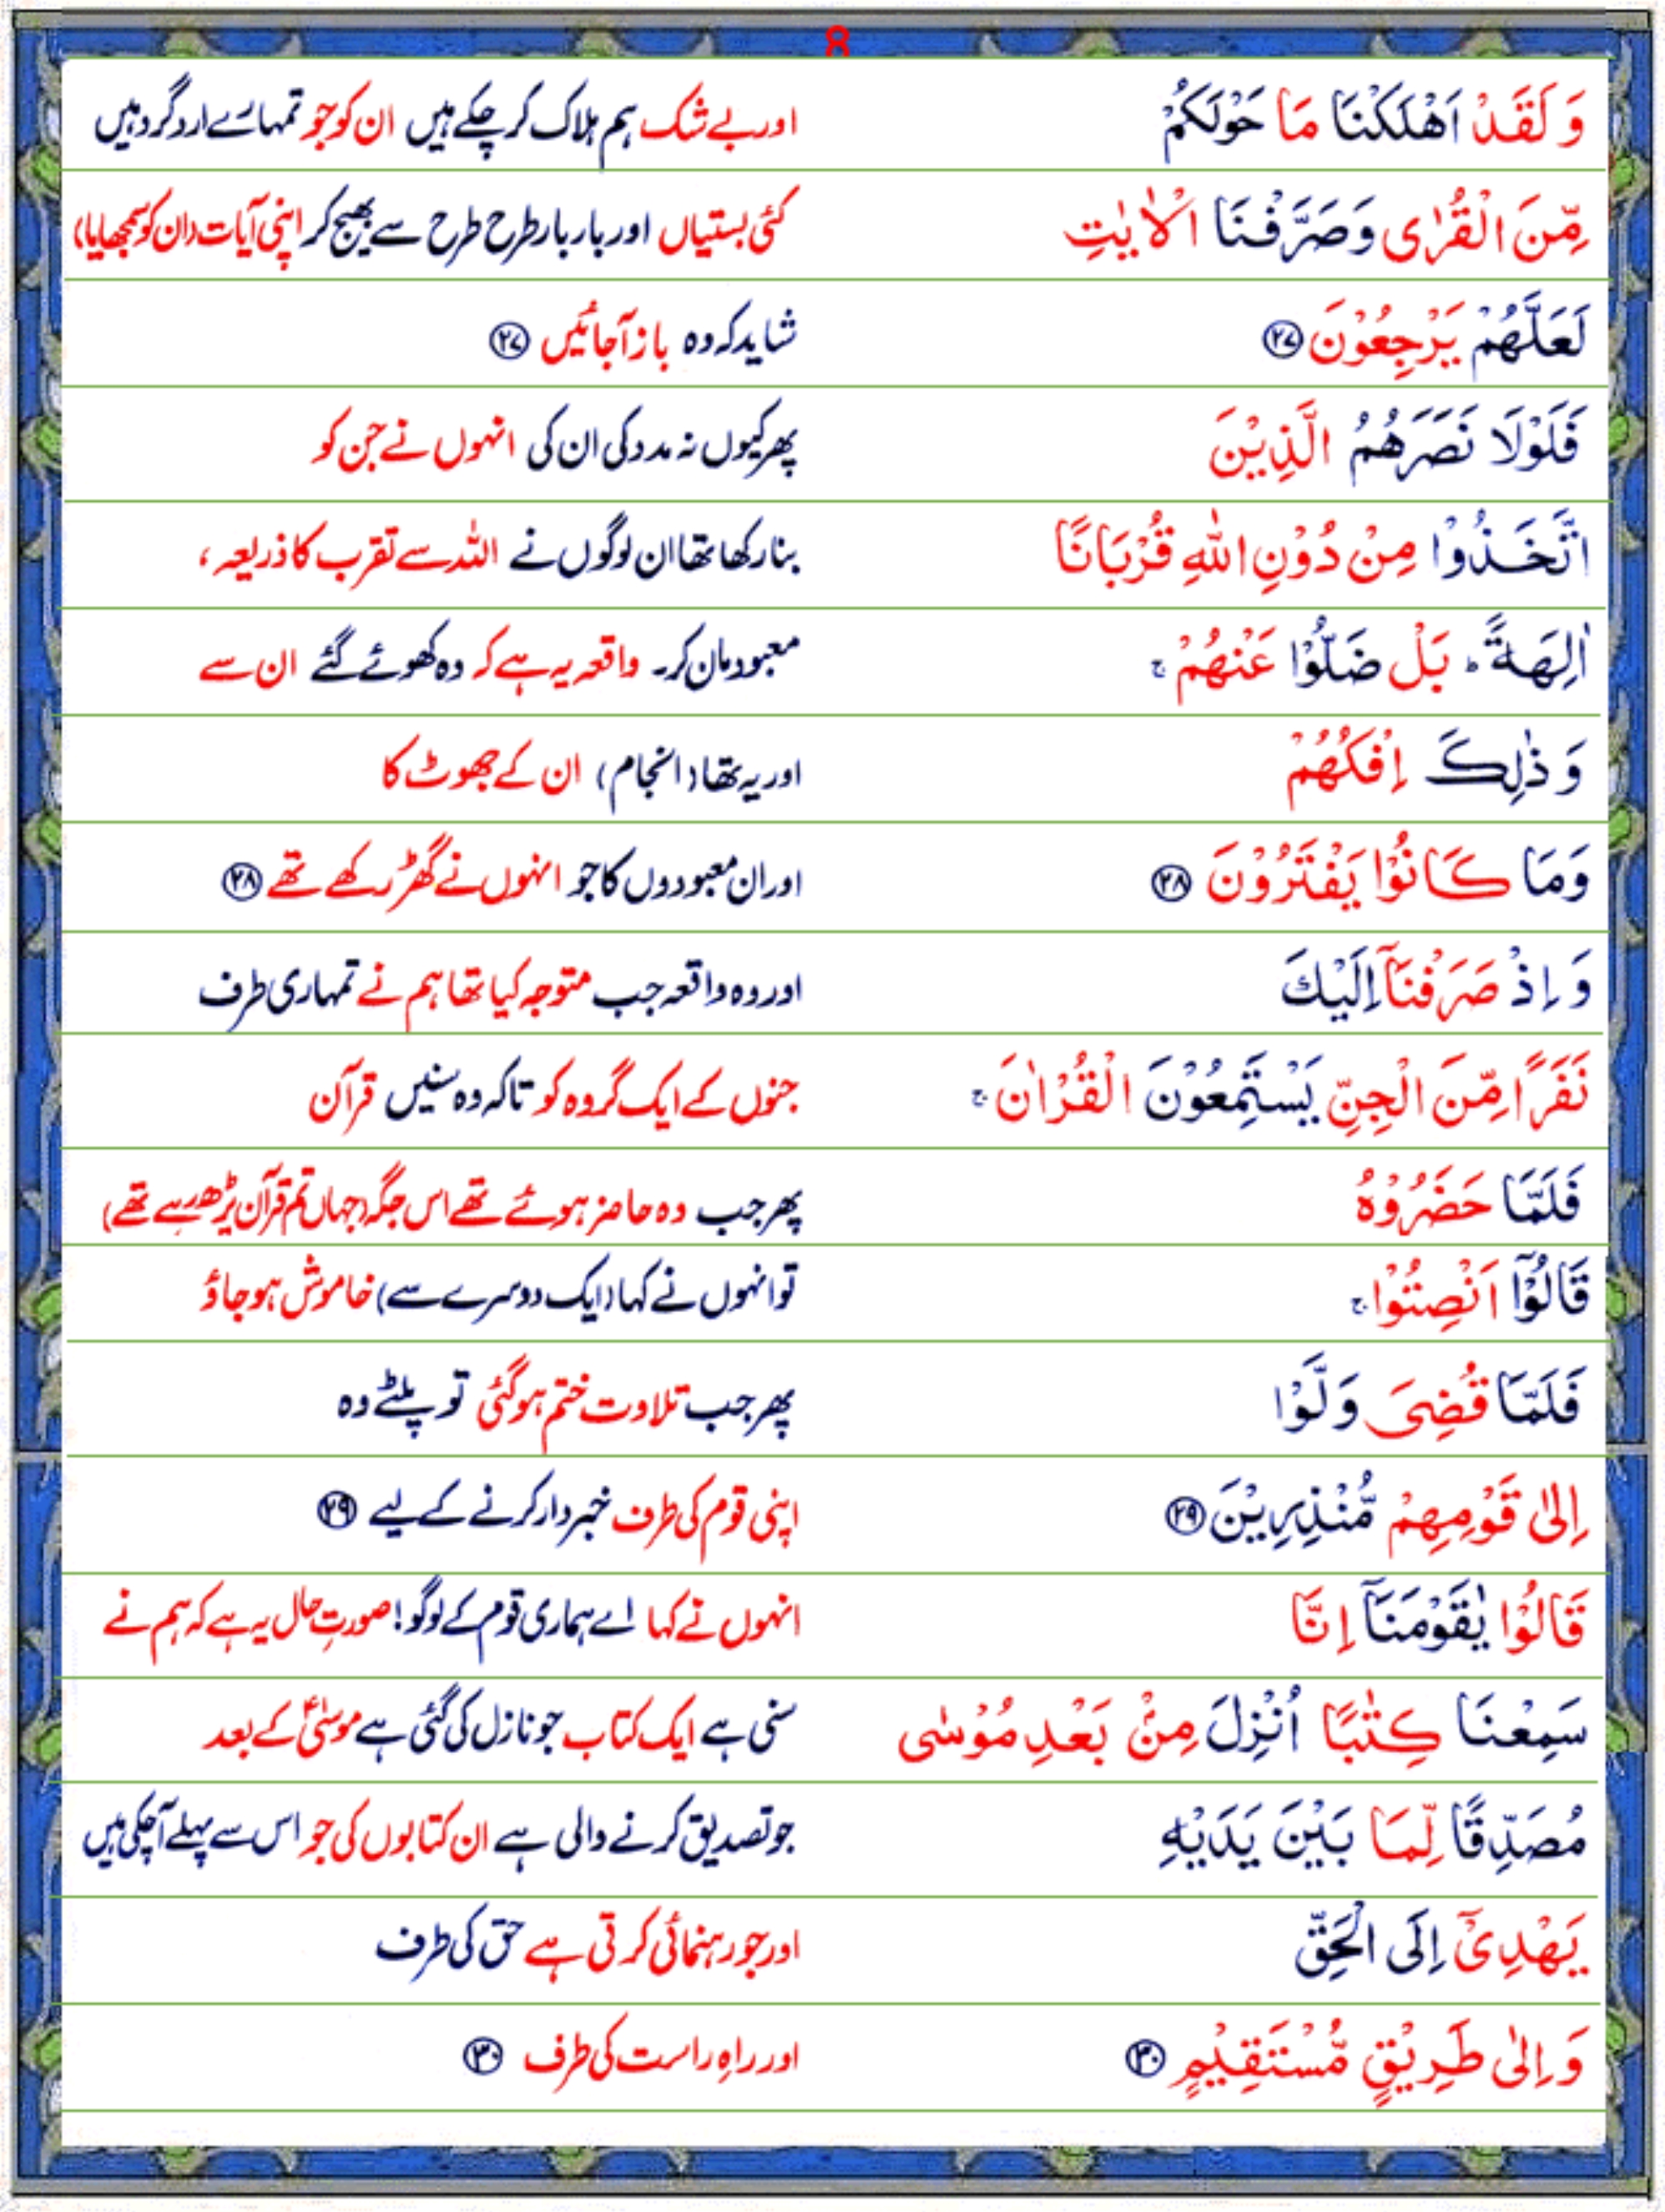 8
وَلَقَدْ اَهْلَكْنَا مَا حَوْلَكُمْ اور بے شک ہم ہلاک کر چکے ہیں ان کو جو تمہارے ارد گرد ہیں
مِّنَ الْقُرٰى وَصَرَّفْنَا الْاٰيٰتِ کئی بستیاں اور بار بار طرح طرح سے بھیج کر اپنی آیات (ان کو سمجھایا)
لَعَلَّهُمْ يَرْجِعُوْنَ ﴿۲۷﴾ شاید کہ وہ باز آجائیں ﴿۲۷﴾
فَلَوْلَا نَصَرَهُمُ الَّذِيْنَ پھر کیوں نہ مدد کی ان کی انہوں نے جن کو
اتَّخَذُوْا مِنْ دُوْنِ اللّٰهِ قُرْبَانًا بنا رکھا تھا ان لوگوں نے اللہ سے تقرب کا ذریعہ ،
اٰلِهَةً ؕ بَلْ ضَلُّوْا عَنْهُمْ ۚ معبود مان کر۔ واقعہ یہ ہے کہ وہ کھوئے گئے ان سے
وَذٰلِكَ اِفْكُهُمْ اور یہ تھا (انجام) ان کے جھوٹ کا
وَمَا كَانُوْا يَفْتَرُوْنَ ﴿۲۸﴾ اور ان معبودوں کا جو انہوں نے گھڑ رکھے تھے ﴿۲۸﴾
وَاِذْ صَرَفْنَاۤ اِلَيْكَ اور وہ واقعہ جب متوجہ کیا تھا ہم نے تمہاری طرف
نَفَرًا مِّنَ الْجِنِّ يَسْتَمِعُوْنَ الْقُرْاٰنَ ۚ جنوں کے ایک گروہ کو تاکہ وہ سنیں قرآن
فَلَمَّا حَضَرُوْهُ پھر جب وہ حاضر ہوئے تھے اس جگہ (جہاں تم قرآن پڑھ رہے تھے)
قَالُوْۤا اَنْصِتُوْا ۚ تو انہوں نے کہا (ایک دوسرے سے) خاموش ہو جاؤ
فَلَمَّا قُضِىَ وَلَّوْا پھر جب تلاوت ختم ہو گئی تو پلٹے وہ
اِلٰى قَوْمِهِمْ مُّنْذِرِيْنَ ﴿۲۹﴾ اپنی قوم کی طرف خبردار کرنے کے لیے ﴿۲۹﴾
قَالُوْا يٰقَوْمَنَاۤ اِنَّا انہوں نے کہا اے ہماری قوم کے لوگو! صورتِ حال یہ ہے کہ ہم نے
سَمِعْنَا كِتٰبًا اُنْزِلَ مِنْۢ بَعْدِ مُوْسٰى سنی ہے ایک کتاب جو نازل کی گئی ہے موسیٰؑ کے بعد
مُصَدِّقًا لِّمَا بَيْنَ يَدَيْهِ جو تصدیق کرنے والی ہے ان کتابوں کی جو اس سے پہلے آچکی ہیں
يَهْدِىْۤ اِلَى الْحَقِّ اور جو رہنمائی کرتی ہے حق کی طرف
وَاِلٰى طَرِيْقٍ مُّسْتَقِيْمٍ ﴿۳۰﴾ اور راہِ راست کی طرف ﴿۳۰﴾